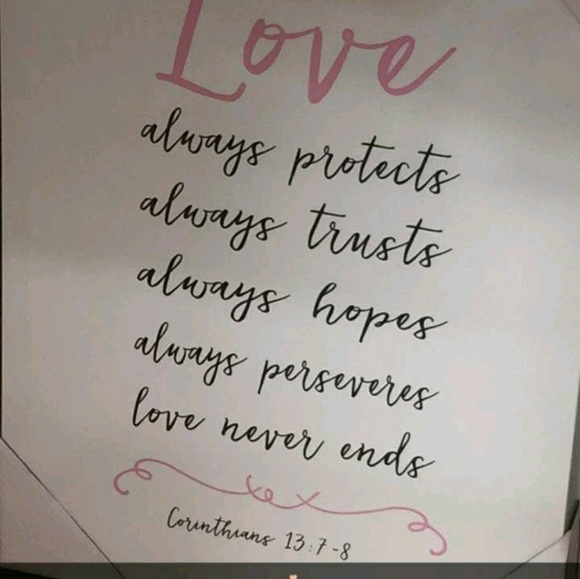 Love
always protects
always trusts
always hopes
always perseveres
love never ends
Corinthians 13:7-8